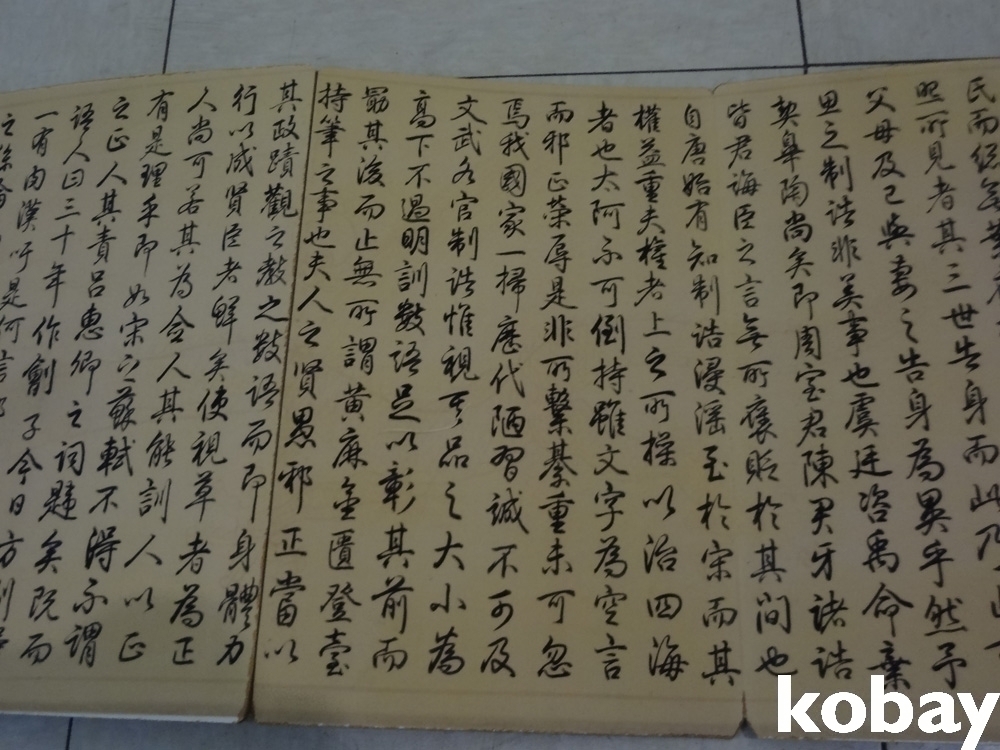 照所見者其三世告身而
父母及己與妻之告身為異乎然予
思之制誥非美事也虞廷咨禹命棄
契皋陶尚矣即周室君陳君牙諸誥
皆君誨臣之言無所褒貶於其間也
自唐始有知制誥浸淫至於宋而其
權益重夫權者上之所操以治四海
者也太阿不可倒持雖文字為空言
而邪正榮辱是非所繫綦重未可忽
焉我國家一掃歷代陋習誠不可及
文武各官制誥惟視其品之大小為
高下不過明訓數語足以彰其前而
勗其後而止無所謂黃麻金匱登臺
持筆之事也夫人之賢愚邪正當以
其政蹟觀之教之數語而即身體力
行以成賢臣者鮮矣使視草者為正
人尚可若其為僉人其能訓人以正
有是理乎即如宋之蘇軾不得不謂
之正人其責呂惠卿之詞韙矣既而
語人曰三十年作劊子今日方剮
一有肉漢吁是何言